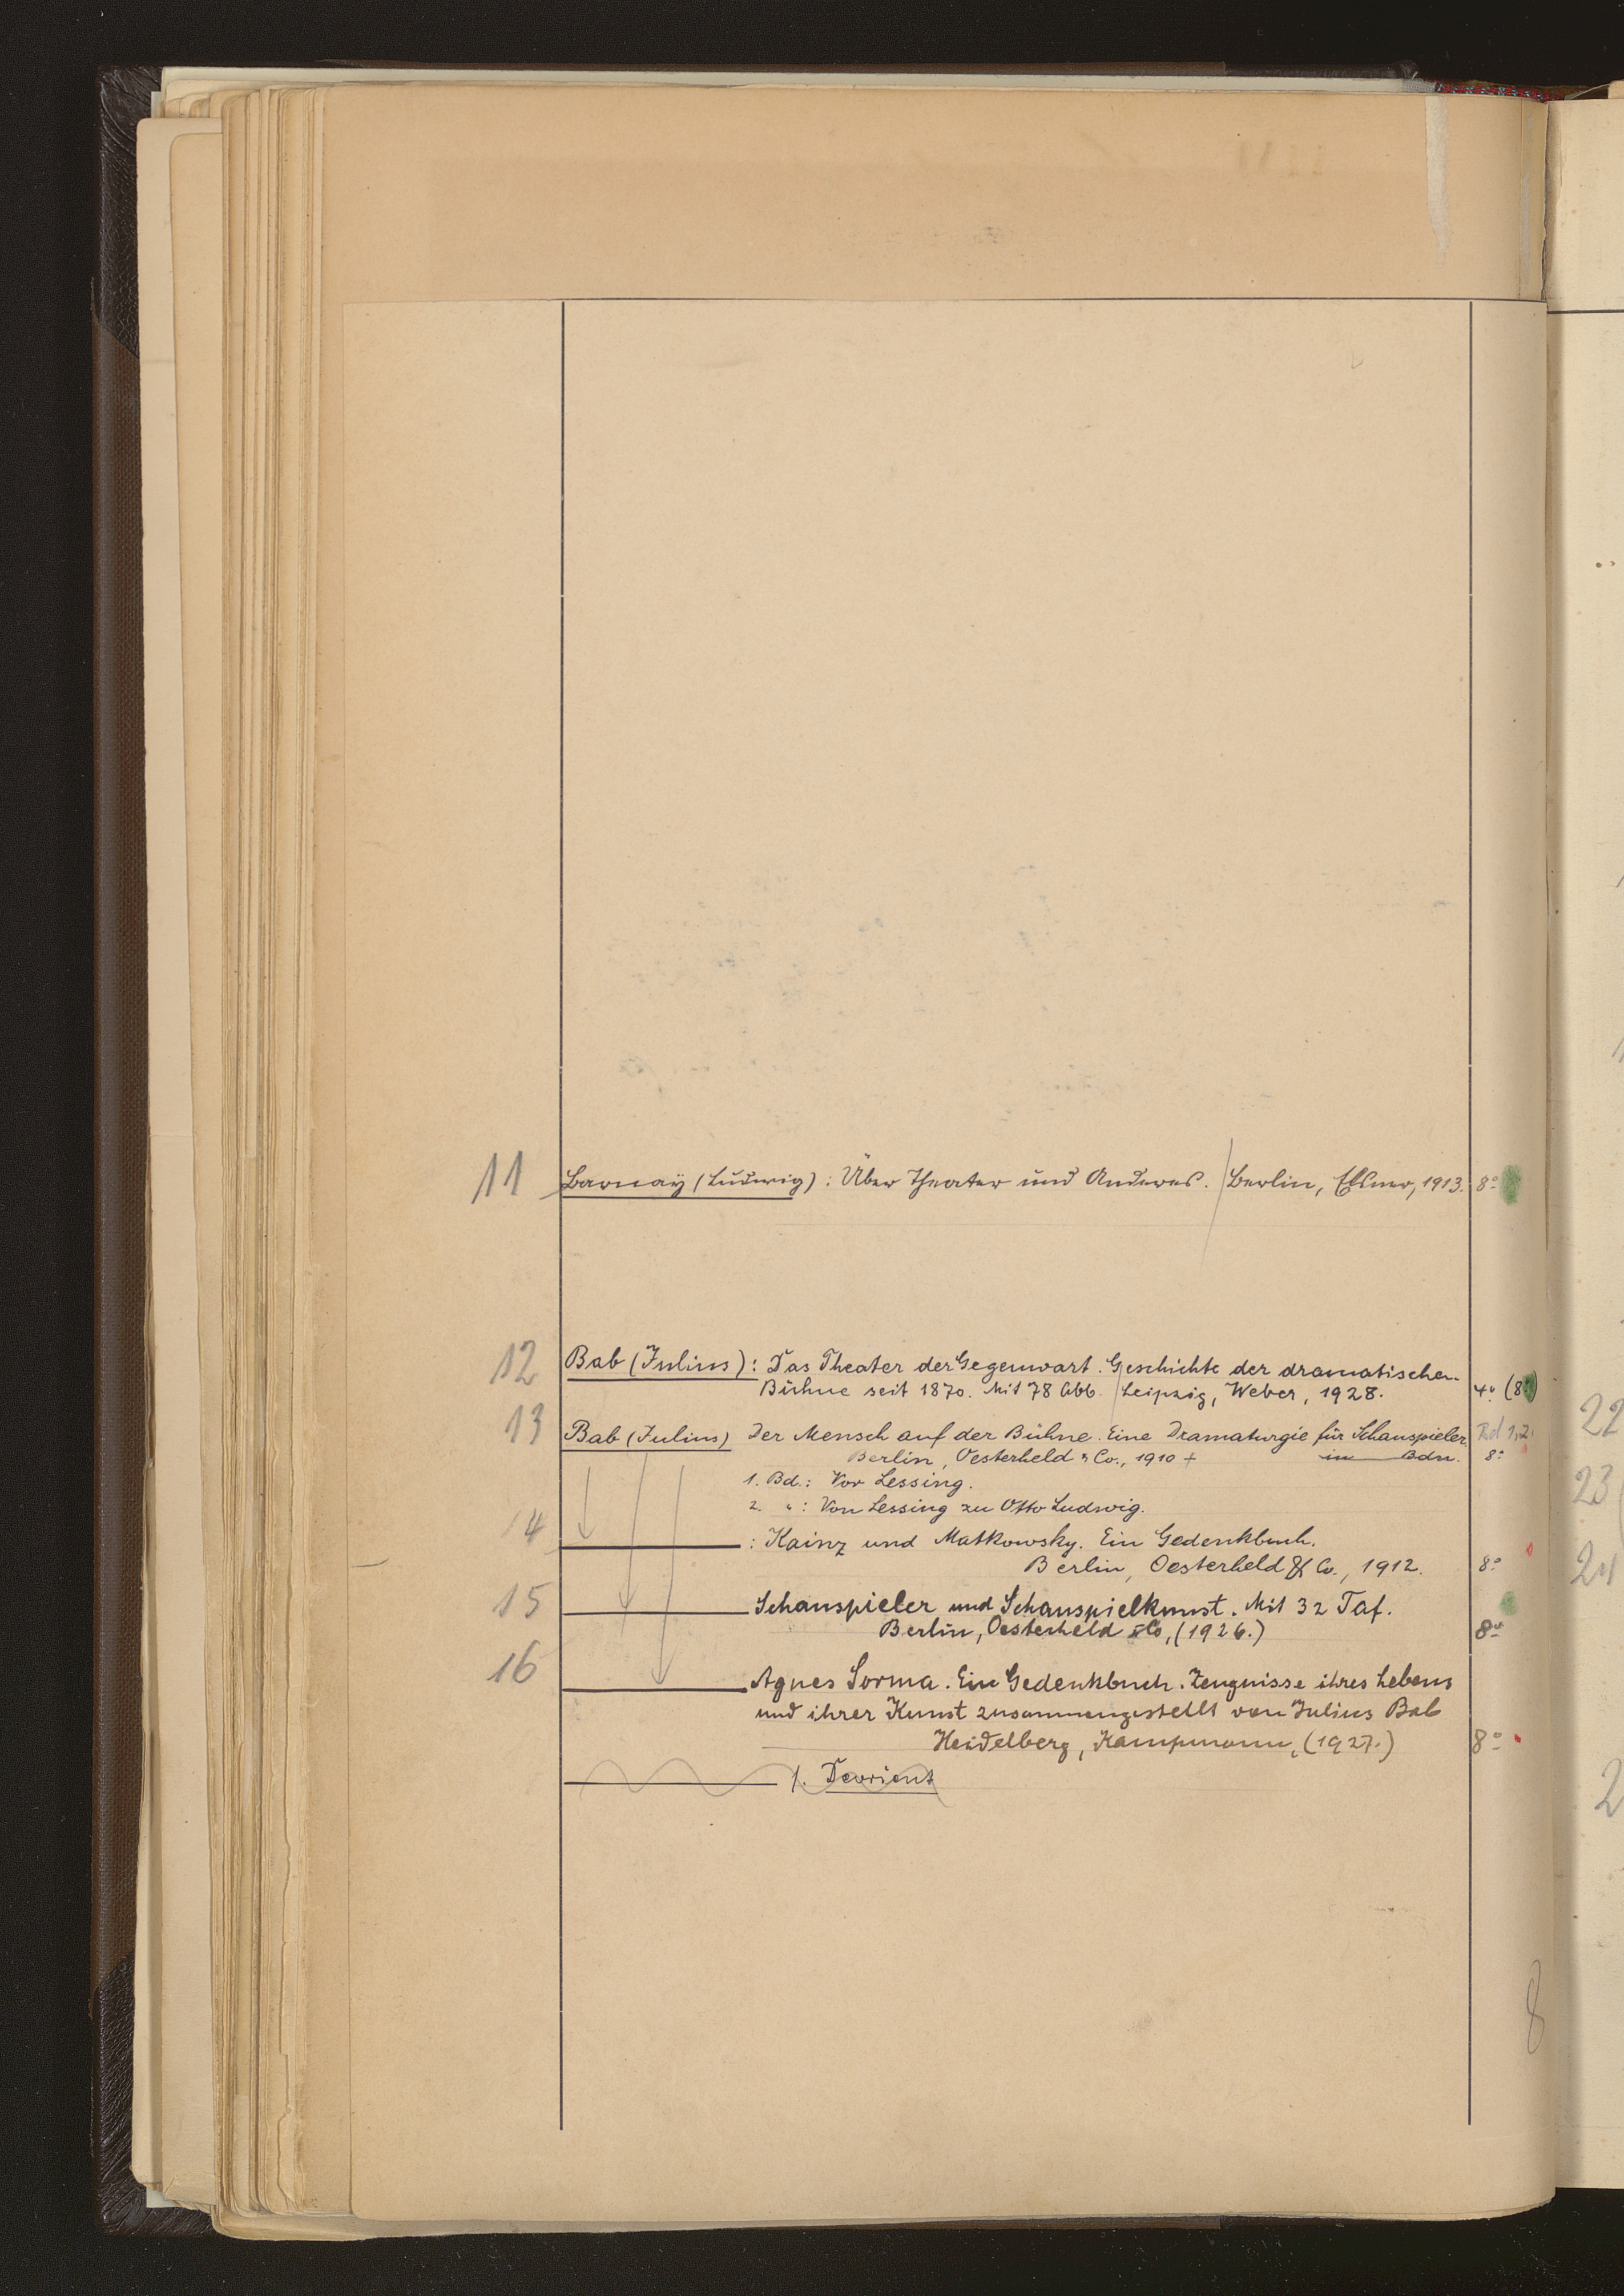 11 Barnay (Ludwig): Über Theater und Anderes. Berlin, Elsner, 1913. 8°
12 Bab (Julius): Das Theater der Gegenwart. Geschichte der dramatischen
Bühne seit 1870. Mit 78 Abb. Leipzig, Weber, 1928. 4° (8°)
13 Bab (Julius) Der Mensch auf der Bühne. Eine Dramaturgie für Schauspieler. Bd 1,2.
Berlin, Oesterheld & Co., 1910 + in Bdn. 8°
1. Bd.: Vor Lessing.
2. " : Von Lessing zu Otto Ludwig.
14 : Kainz und Matkowsky. Ein Gedenkbuch.
Berlin, Oesterheld & Co., 1912. 8°
15 Schauspieler und Schauspielkunst. Mit 32 Taf.
Berlin, Oesterheld & Co, (1926.) 8°
16 Agnes Sorma. Ein Gedenkbuch. Zeugnisse ihres Lebens
und ihrer Kunst zusammengestellt von Julius Bab
Heidelberg, Kampmann, (1927.) 8°
s. Devrient
8
22
23
24
2